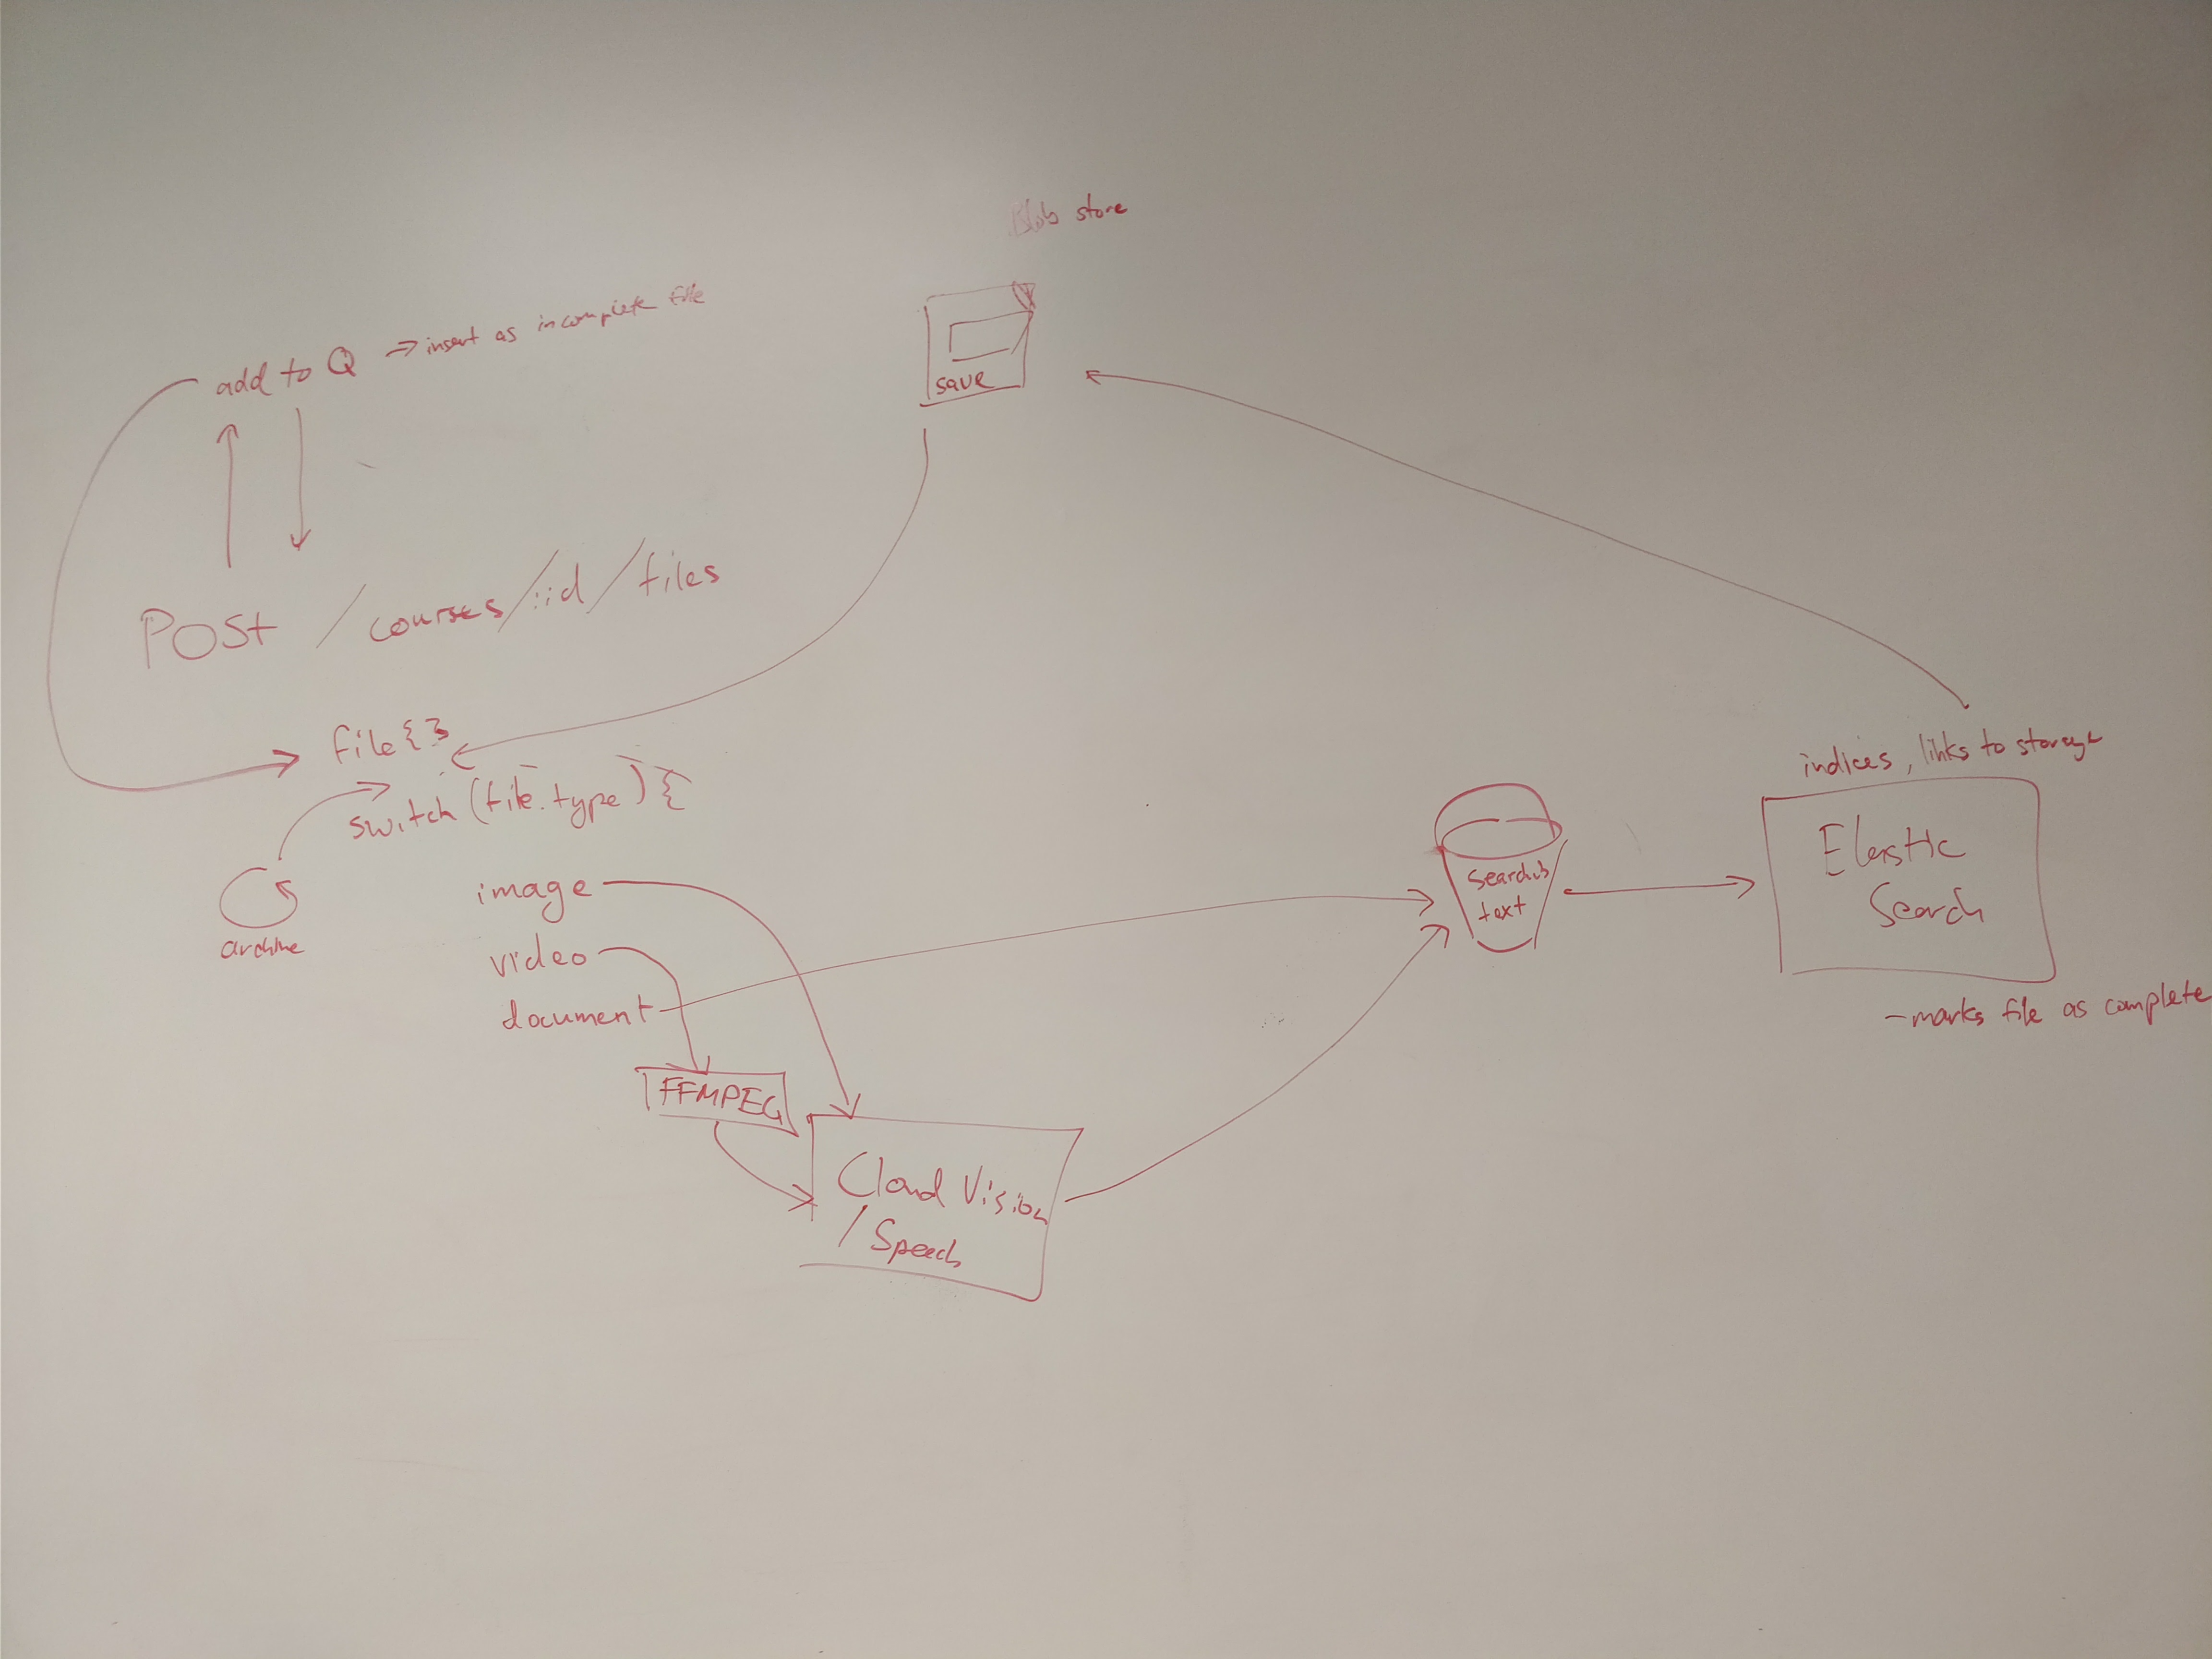 Blob store
add to Q → insert as incomplete file
save
POST / courses/:id/files
file{}
switch (file.type) {
archive
image
video
document
FFMPEG
Cloud Vision
/ Speech
text
indices, links to storage
Elastic
Search
- marks file as complete